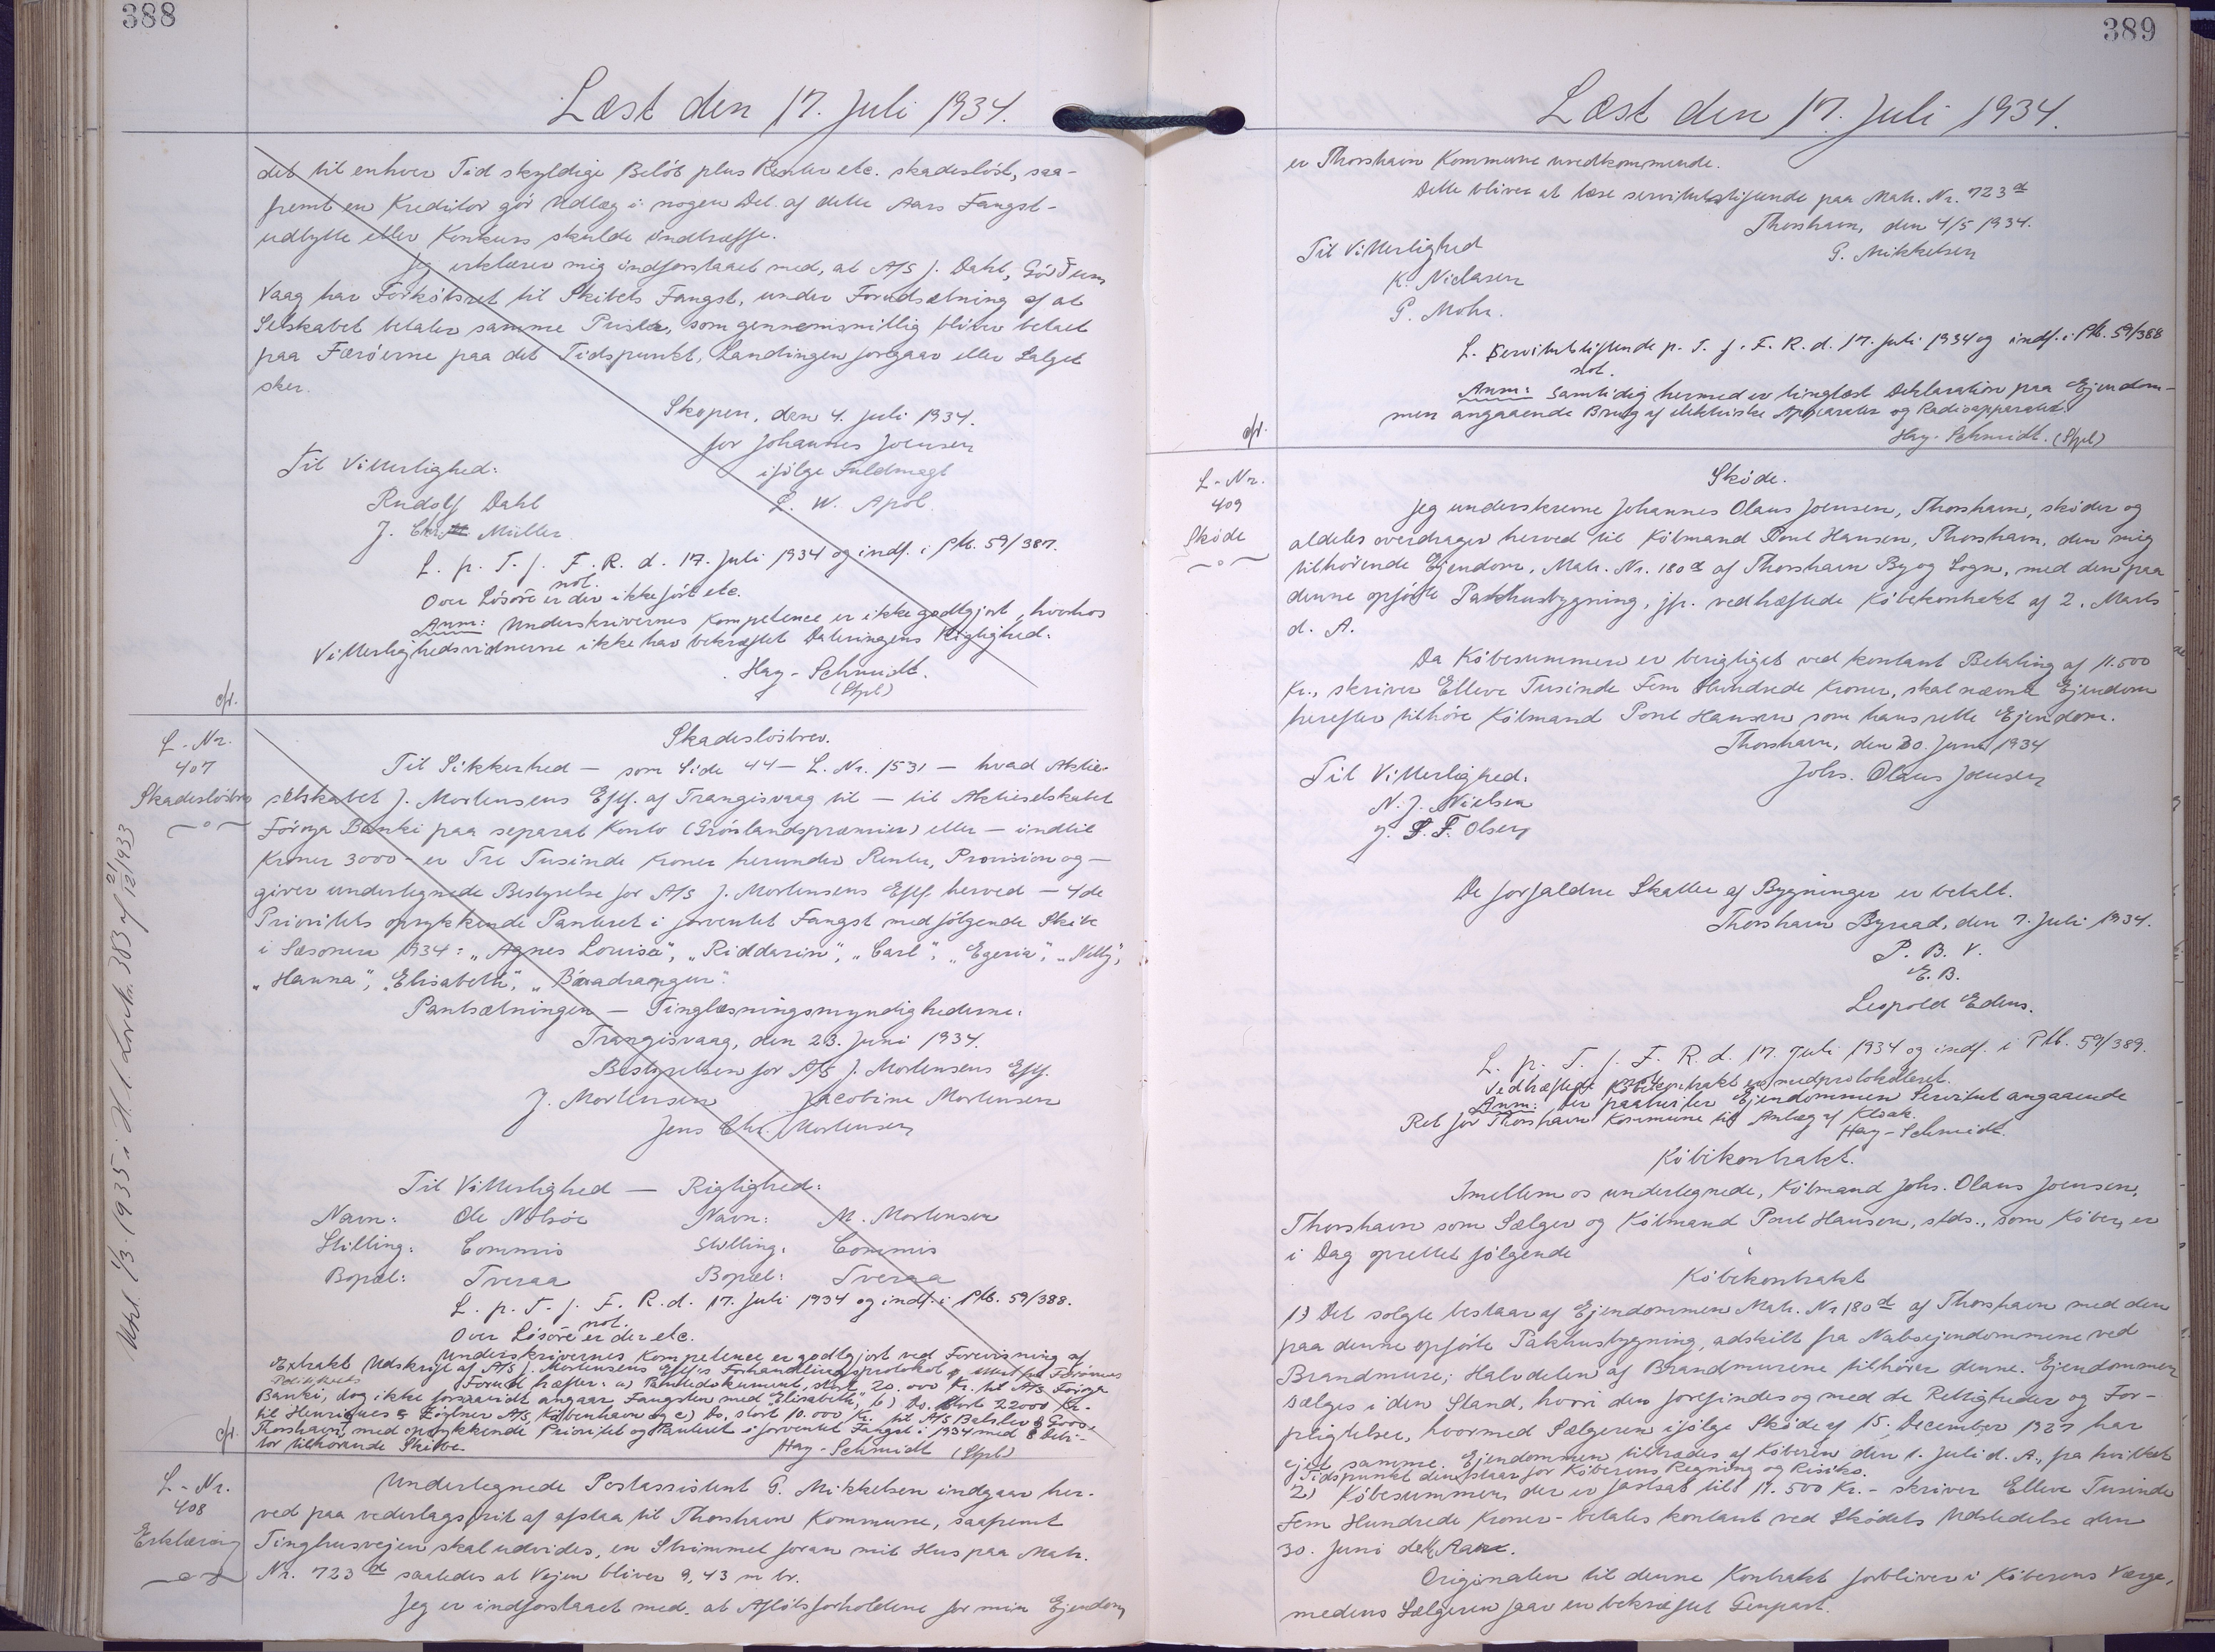 388
Læst den 17. Juli 1934.
det til enhver Tid skyldige Beløb plus Renter etc. skadesløst, saa-
fremt en Kreditor gør Udlæg i nogen Del af dette Aars Fangst-
udbytte eller Konkurs skulde indtræffe.
Jeg erklærer mig indforstaaet med, at A/S J. Dahl,
Vaag har Forkøbsret til Skibets Fangst, under Forudsætning af at
Selskabet betaler samme Priser, som gennemsnitlig bliver betalt
paa Færøerne paa det Tidspunkt, Landingen foregaar eller Salget
sker.
Skopen, den 4. Juli 1934.
for Johannes Joensen
ifølge Fuldmagt
L. W. Apol.
Til Vitterlighed:
Rudolf Dahl
J. Chr. Müller.
L. p. T. f. F. R. d. 17. Juli 1934 og indf. i Ptb. 59/387.
Over Løsøre not. er der ikke ført etc.
Anm: Underskrivernes Kompetence er ikke godtgjort, hvorhos
Vitterlighedsvidnerne ikke har bekræftet Dateringens Rigtighed.
Hay-Schmidt.
(Spl)
cfr.
L-Nr.
407
Skadesløsbrev
Skadesløsbrev.
Til Sikkerhed — som Side 44 — L. Nr. 153, — hvad Aktie-
selskabet J. Mortensens Eftf. af Trangisvaag til — til Aktieselskabet
Føroya Banki paa separat Konto (Grønlandspræmier) eller — indtil
Kroner 3000 - er Tre Tusinde Kroner herunder Renter, Provision og —
giver undertegnede Bestyrelse for A/S J. Mortensens Eftf. herved — 4de
Prioritets oprykkende Panteret i forventet Fangst med følgende Skibe
i Sæsonen 1934: „Agnes Louise", „Riddarin", „Carl", „Egeria", „Nelly",
„Hanna", „Elisabeth", „Báradrangur".
Pantsætningen — Tinglæsningsmyndighederne.
Trangisvaag, den 23. Juni 1934.
Bestyrelsen for A/S J. Mortensens Eftf.
J. Mortensen Jacobine Mortensen
Jens Chr. Mortensen
Til Vitterlighed — Rigtighed:
Navn: Ole Nolsøe Navn: M. Mortensen
Stilling: Commis Stilling: Commis
Bopæl: Tveraa Bopæl: Tveraa
L. p. T. f. F. R. d. 17. Juli 1934 og indf. i Ptb. 59/388.
Over Løsøre not. er der etc.
Underskrivernes Kompetence er godtgjort ved Forevisning af
Extrakt Udskrift af A/S J. Mortensens Eftf's Forhandlingsprotokol
Forud hæfter: a) Pantedokument, stort 20.000 Kr. til A/S Føroya
Banki, dog ikke forsaavidt angaar Fangsten med „Elisabeth", b) Do. stort 22000 Kr.
til Henriques & Zöylner A/S, København og c) Do. stort 10.000 Kr. til A/S Balslev &
Thorshavn, med oprykkende Prioritet og Panteret i forventet Fangst i 1934 med 8 Debi-
tor tilhørende Skibe.
Hay-Schmidt (Spl)
cfr.
Udsl. 1/3. 1935 i H. t. Lovtr. 383 af 21/12 1933
L-Nr.
408
Erklæring
Undertegnede Postassistent G. Mikkelsen indgaar her-
ved paa vederlagsfrit at afstaa til Thorshavn Kommune, saafremt
Tinghusvejen skal udvides, en Strimmel foran mit Hus paa Matr.
Nr. 723 d saaledes at Vejen bliver 9,43 m br.
Jeg er indforstaaet med, at Afløbsforholdene for min Ejendom
389
Læst den 17. Juli 1934.
er Thorshavn Kommune uvedkommende.
Dette bliver at læse servitutstiftende paa Matr. Nr. 723 d
Thorshavn, den 4/5 1934.
G. Mikkelsen
Til Vitterlighed
K. Niclasen
G. Mohr.
L. servitutstiftende p. T. f. F. R. d. 17. Juli 1934 og indf. i Ptb. 59/388
not.
Anm: Samtidig hermed er tinglæst Deklaration paa Ejendom-
men angaaende Brug af elektriske Apparater og Radioapparater.
Hay-Schmidt. (Spl)
cfr.
L-Nr.
409
Skøde
Skøde.
Jeg underskrevne Johannes Olaus Joensen, Thorshavn, skøder og
aldeles overdrager herved til Købmand Poul Hansen, Thorshavn, den mig
tilhørende Ejendom, Matr. Nr. 180 d af Thorshavn By og Sogn, med den paa
denne opførte Pakhusbygning, jfr. vedhæftede Købekontrakt af 2. Marts
d. A.
Da Købesummen er berigtiget ved kontant Betaling af 11.500
Kr., skriver Elleve Tusinde Fem Hundrede Kroner, skal nævnte Ejendom
herefter tilhøre Købmand Poul Hansen som hans rette Ejendom.
Thorshavn, den 30. Juni 1934
Johs. Olaus Joensen
Til Vitterlighed:
N. J. Nielsen
J. P. F. Olsen
De forfaldne Skatter af Bygninger er betalt.
Thorshavn Byraad, den 7. Juli 1934.
P. B. V.
E. B.
Leopold Edens.
L. p. T. f. F. R. d. 17. Juli 1934 og indf. i Ptb. 59/389.
Vedhæftede Købekontrakt er medprotokolleret.
Anm: Der paahviler Ejendommen Servitut angaaende
Ret for Thorshavn Kommune til Anlæg af Kloak.
Hay-Schmidt.
Købekontrakt.
Imellem os undertegnede, Købmand Johs. Olaus Joensen,
Thorshavn som Sælger og Købmand Poul Hansen, stds., som Køber, er
i Dag oprettet følgende
Købekontrakt
1) Det solgte bestaar af Ejendommen Matr. Nr 180 d af Thorshavn med den
paa denne opførte Pakhusbygning, adskilt fra Naboejendommene ved
Brandmure; Halvdelen af Brandmurene tilhører denne. Ejendommen
sælges i den Stand, hvori den forefindes og med de Rettigheder og For-
pligtelser, hvormed Sælgeren ifølge Skøde af 15. December 1927 har
ejet samme. Ejendommen tiltrædes af Køberen den 1. Juli d. A., fra hvilket
Tidspunkt den staar for Køberens Regning og Risiko.
2) Købesummen, der er fastsat til 11.500 Kr. - skriver Elleve Tusinde
Fem Hundrede Kroner - betales kontant ved Skødets Udstedelse den
30. Juni dette Aar.
Originalen til denne Kontrakt forbliver i Køberens Værge,
medens Sælgeren faar en bekræftet Genpart.